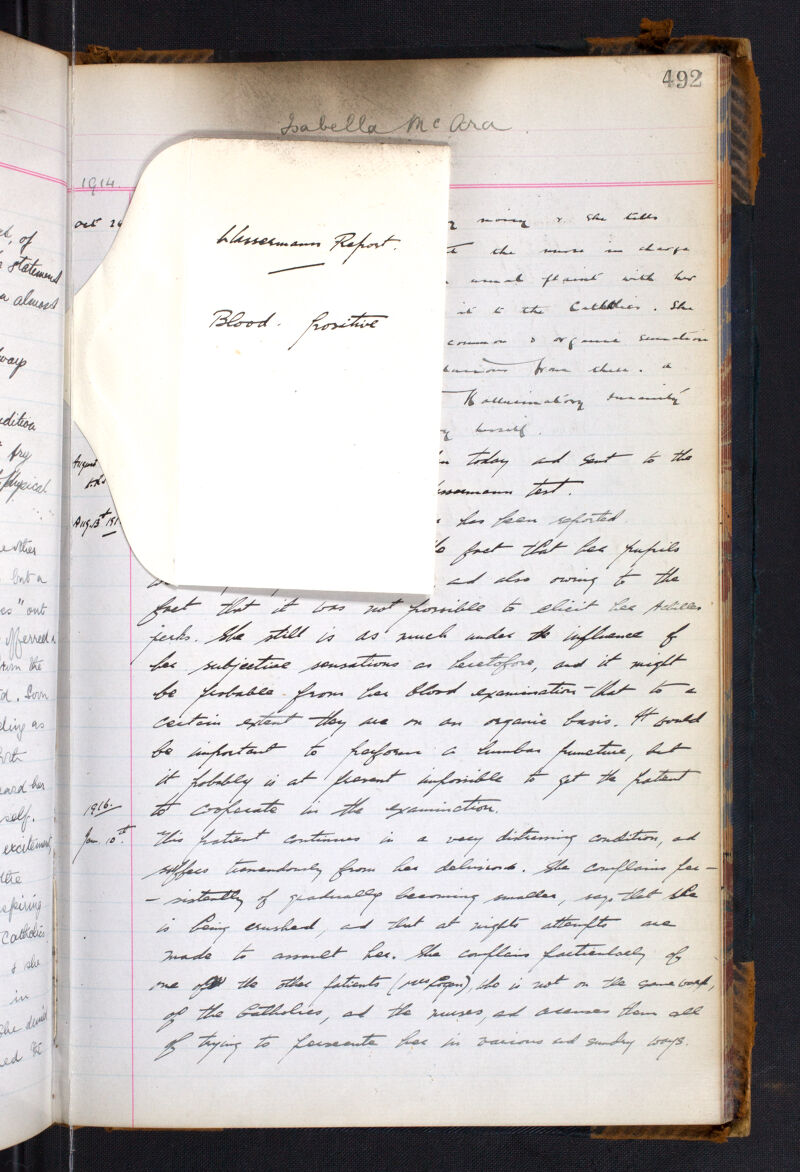 492
Isabella McAra
1914.
Oct 24
noisy & she tells
the nurse in charge
usual plaint with her
it to the Catholics. She
common & organic sensation
from these. a
Hallucinatory insanity
herself.
August
today and sent to the
Wassermann test.
Aug. 13th 191
has been reported
fact that her pupils
and also owing to the
fact that it was not possible to elicit her Achilles
jerks. She still is as much under the influence of
her subjective sensations as heretofore, and it might
be probable from her blood examination that to a
certain extent they are on an organic basis. It would
be important to perform a lumbar puncture, but
it probably is at present impossible to get the patient
to cooperate in the examination.
1916.
Jan. 10th.
This patient continues in a very distressing condition, ad
suffers tremendously from her delusions. She complains per-
- sistently of gradually becoming smaller, says that she
is being crushed, ad that at nights attempts are
made to assault her. She complains particularly of
one of the other patients (Mrs Logan), who is not on the same ward,
of the Catholics, ad the nurses, ad accuses them all
of trying to persecute her in various and sundry ways.
Wassermann Report.
Blood. positive
of
statement
almost
way
dition
try
physical
other
but a
out
from the
Soon
ding as
heard her
self.
excitement
the
Catholic
& she
in
she denied